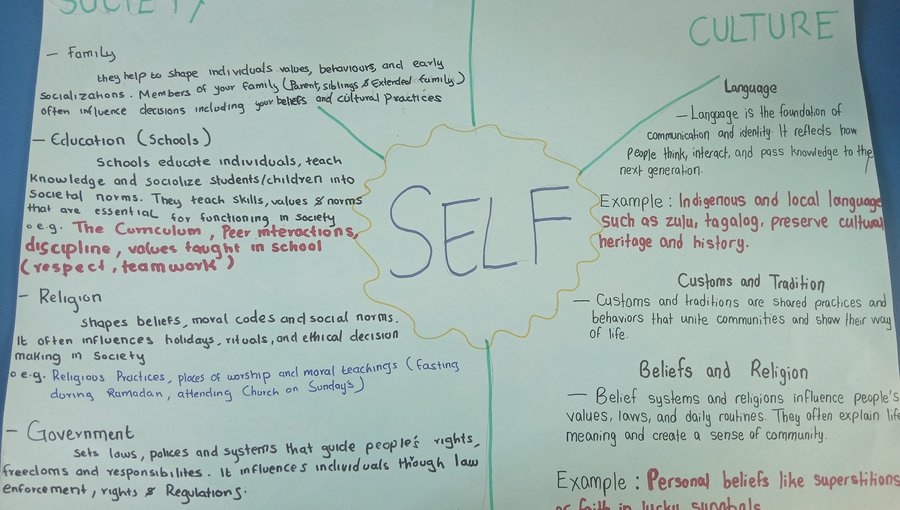 SOCIETY
- Family
they help to shape individuals values, behaviours, and early
socializations. Members of your family (Parent, siblings & Extended family)
often influence decisions including your beliefs and cultural Practices
- Education (Schools)
Schools educate individuals, teach
Knowledge and socialize students/children into
Societal norms. They teach skills, values & norms
that are essential for functioning in society
o e.g. The Curriculum, Peer interactions,
discipline, values taught in school
(respect, teamwork)
- Religion
shapes beliefs, moral codes and social norms.
It often influences holidays, rituals, and ethical decision
making in Society
o e.g. Religious Practices, places of worship and moral teachings (fasting
during Ramadan, attending Church on Sunday's)
- Government
sets laws, polices and systems that guide people's rights,
freedoms and responsibilites. It influences individuals though law
enforcement, rights & Regulations.
SELF
CULTURE
Language
- Language is the foundation of
communication and identity. It reflects how
people think, interact, and pass knowledge to the
next generation.
Example: Indigenous and local language
such as zulu, tagalog, preserve cultural
heritage and history.
Customs and Tradition
- Customs and traditions are shared practices and
behaviors that unite communities and show their way
of life.
Beliefs and Religion
- Belief systems and religions influence people's
values, laws, and daily routines. They often explain life
meaning and create a sense of community.
Example: Personal beliefs like superstitions
or faith in lucky symbols